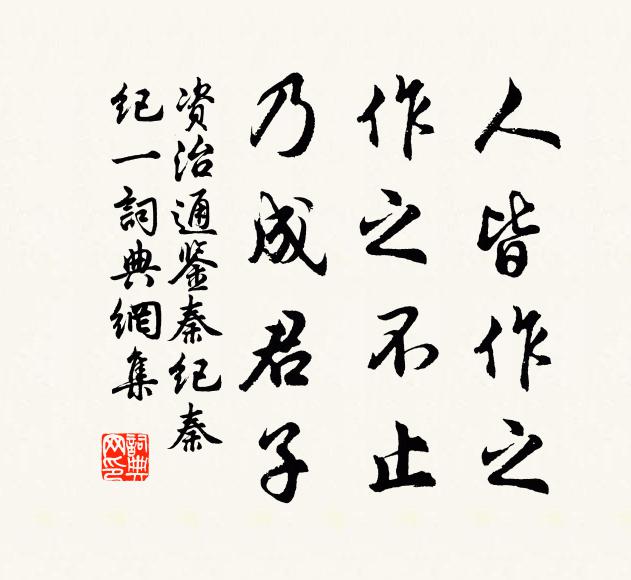 人皆作之
作之不止
乃成君子
资治通鉴秦纪秦
纪一詞典網集
詞典
网印